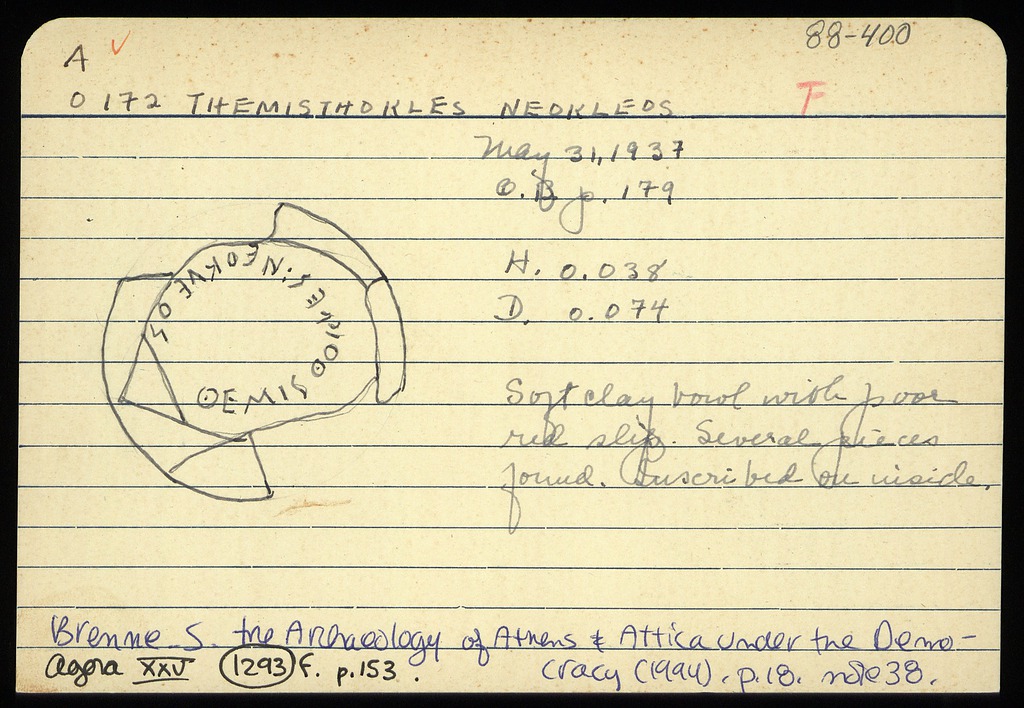 88-400
A ✓
O 172 THEMISTHOKLES NEOKLEOS F
May 31, 1937
O.B p. 179
H. 0.038
D. 0.074
Soft clay bowl with poor
red slip. Several pieces
found. Inscribed on inside.
Brenne S. the Archaeology of Athens & Attica under the Demo-
cracy (1994). p.18. note 38.
Agora XXV 1293 f. p.153.